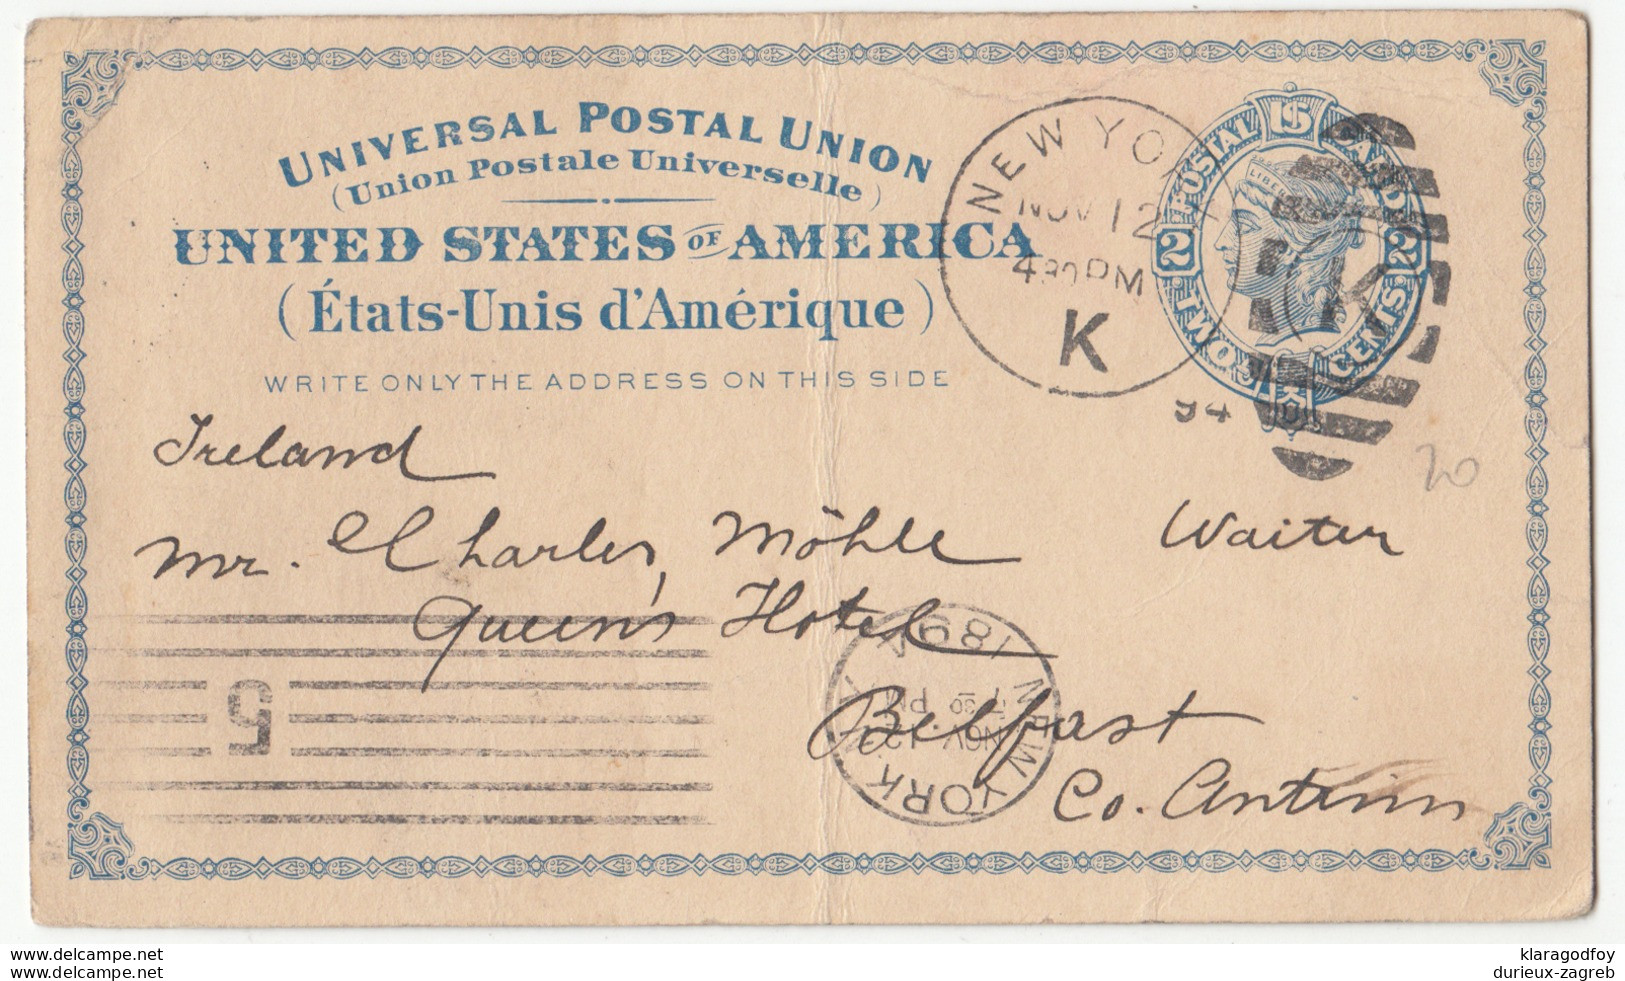 UNIVERSAL POSTAL UNION
(Union Postale Universelle)
UNITED STATES OF AMERICA
(États-Unis d'Amérique)
WRITE ONLY THE ADDRESS ON THIS SIDE
NEW YORK
NOV 12
430 PM
K
94
POSTAL CARD
U S
2 2
LIBERTY
TWO CENTS
K
20
Ireland
Mr. Charles Möhle Waiter
Queen's Hotel
Belfast
Co. Antrim
5
NEW YORK
NOV 12
7 30 PM
1894
klaragodfoy
delcampe.net
durieux-zagreb
delcampe.net